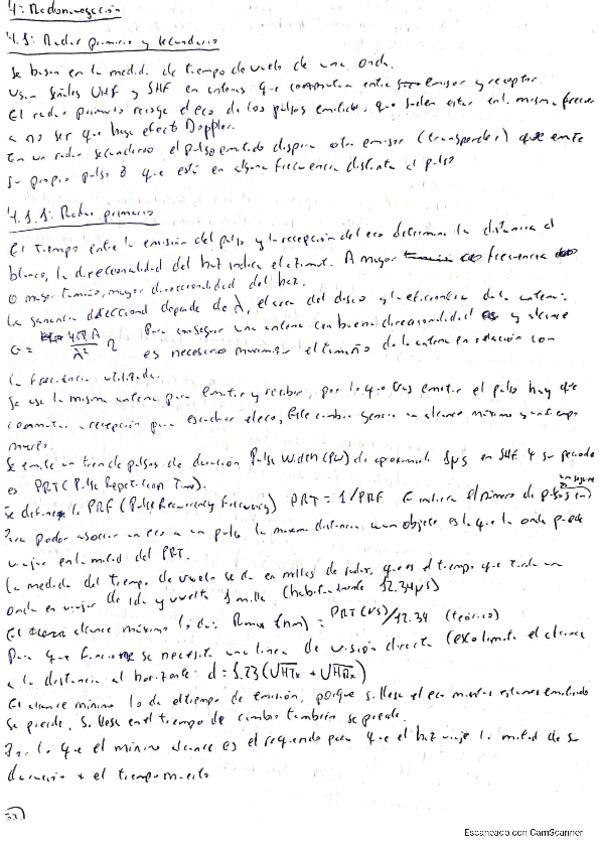 4: Radionavegación
4.1: Radar primario y secundario
Se basan en la medida de tiempo de vuelo de una onda.
Usan señales UHF y SHF en antenas que conmutan entre emisor y receptor.
El radar primario recoge el eco de los pulsos emitidos, que suelen estar en la misma frecuencia
a no ser que haya efecto Doppler.
En un radar secundario el pulso emitido dispara otro emisor (transpondedor) que emite
su propio pulso que está en alguna frecuencia distinta al pulso
4.1.1: Radar primario
El tiempo entre la emisión del pulso y la recepción del eco determina la distancia al
blanco, la direccionalidad del haz indica el azimut. A mayor frecuencia
o mayor tamaño, mayor direccionalidad del haz.
La ganancia direccional depende de λ, el área del disco y la eficiencia de la antena:
G = 4πA/λ² η Para conseguir una antena con buena direccionalidad y alcance
es necesario maximizar el tamaño de la antena en relación con
la frecuencia utilizada.
Se usa la misma antena para emitir y recibir, por lo que tras emitir el pulso hay que
conmutar a recepción para escuchar el eco, Este cambio genera un alcance máximo y un tiempo
muerto.
Se emite un tren de pulsos de duración Pulse Width (PW) de aproximad. 1μs en SHF y su periodo
es PRT (Pulse Repetition Time).
Se define la PRF (Pulse Recurrency Frequency) PRT = 1/PRF. E indica el número de pulsos en un segundo
Para poder asociar un eco a un pulso la máxima distancia a un objeto es la que la onda puede
viajar en la mitad del PRT.
La medida del tiempo de vuelo se da en millas de radar, que es el tiempo que tarda una
onda en viajar de ida y vuelta 1 milla (habitualmente 12.34μs)
El alcance máximo lo da: Rmax (nm) = PRT(μs)/12.34 (teórico)
Para que funcione se necesita una línea de visión directa (eso limita el alcance
a la distancia al horizonte: d = 1.23(√HTx + √HRx)
El alcance mínimo lo da el tiempo de emisión, porque si llega el eco mientras estamos emitiendo
se pierde. Si llega en el tiempo de cambio también se pierde.
Por lo que el mínimo alcance es el requerido para que el haz viaje la mitad de su
duración + el tiempo muerto
Escaneado con CamScanner